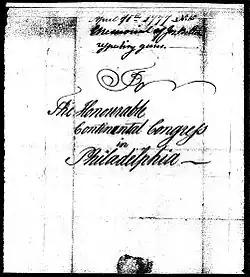 April 11th 1777
Memorial of
repeating guns.
To
The Honourable
Continental Congress
in
Philadelphia